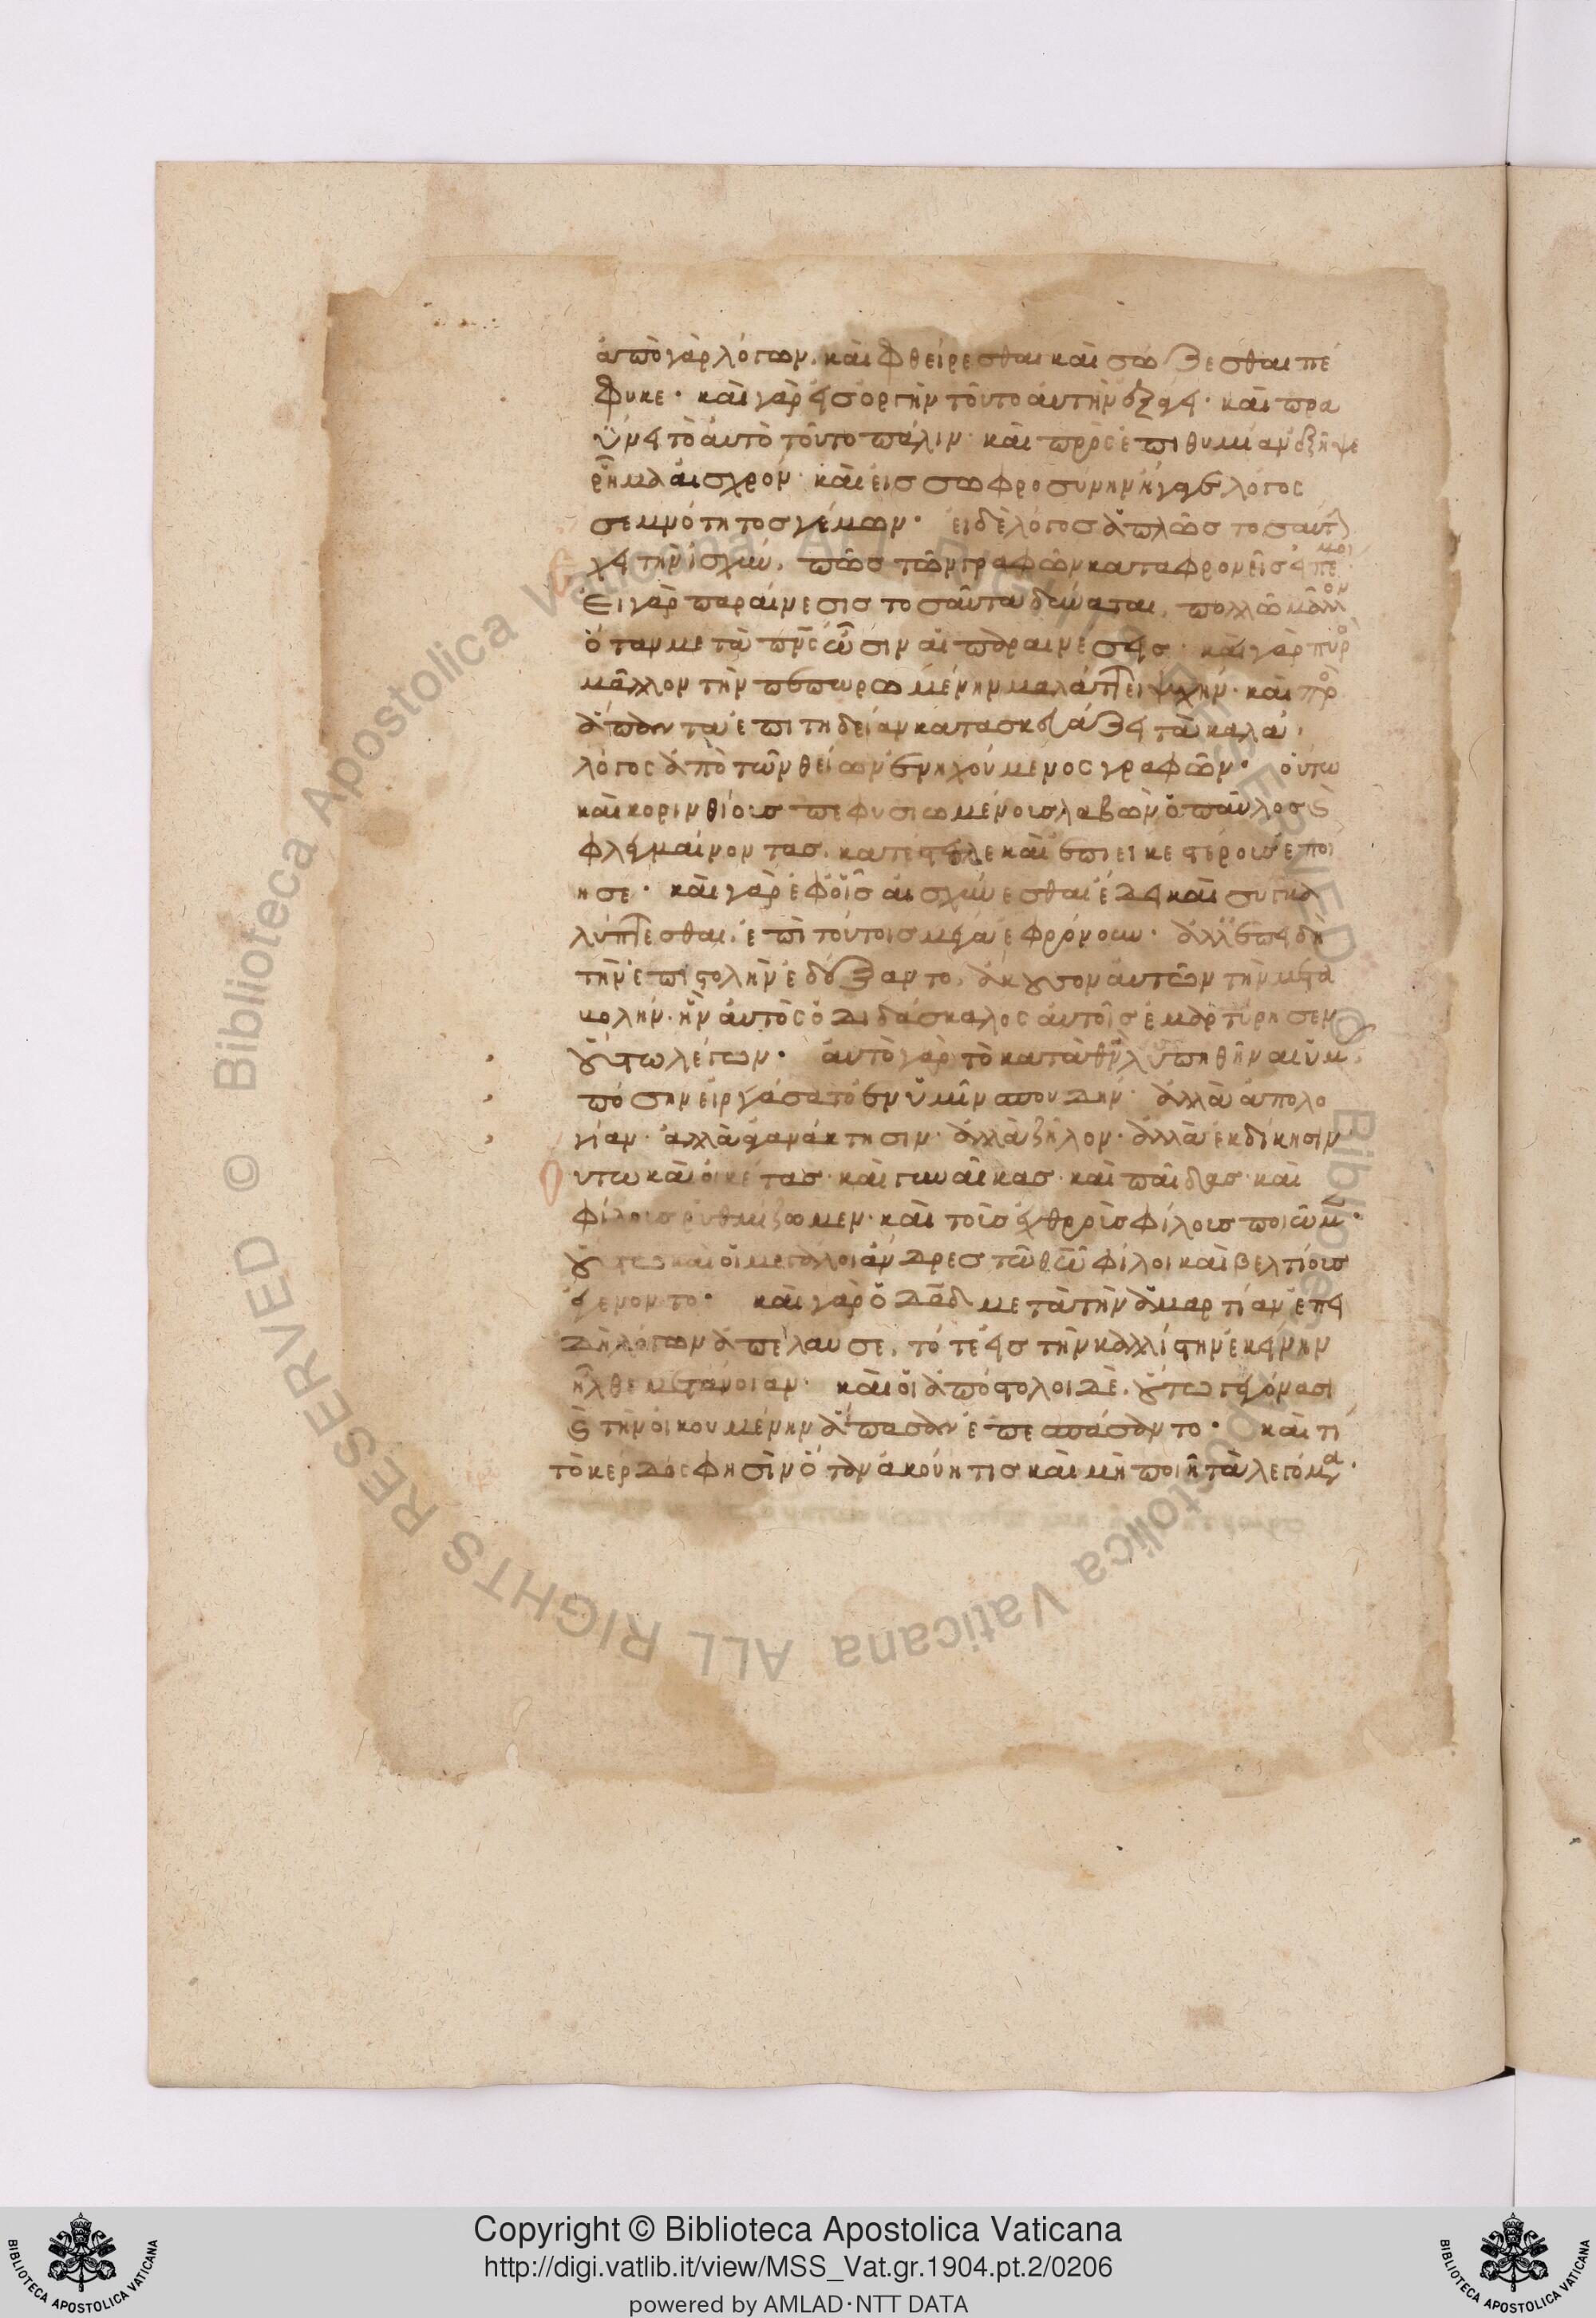 ἀπὸ γὰρ λόγων. καὶ φθείρεσθαι καὶ σώζεσθαι πέ
φυκε· καὶ γὰρ εἰς ὀργὴν τοῦτο αὐτὴν ἐξάγει· καὶ πρα
ΰνει τὸ αὐτὸ τοῦτο πάλιν· καὶ πρὸς ἐπιθυμίαν ἐξῆψε
ῥῆμα αἰσχρόν· καὶ εἰς σωφροσύνην ἤγαγε λόγος
σεμνότητος γέμων· εἰ δὲ λόγος ἁπλῶς τοσαύτ
χει τὴν ἰσχύν. πῶς τῶν γραφῶν καταφρονεῖς εἰπέ μοι
Ει γὰρ παραίνεσις τοσαῦτα δύναται, πολλῶ μᾶλλον
ὅταν μετὰ πνς ὦσιν αἱ παραινέσεις· καὶ γὰρ πυρὸ
μᾶλλον τὴν πεπωρωμένην μαλάττει ψυχήν· καὶ πρὸ
ἅπαντα ἐπιτηδείαν κατασκευάζει τὰ καλά·
λόγος ἀπὸ τῶν θείων ἐνηχούμενος γραφῶν· οὕτω
καὶ κορινθίοις πεφυσιωμένοις λαβὼν ὁ παῦλος κ
φλεγμαίνοντας. κατέστειλε καὶ ἐπιεικεστέρους ἐποί
ησε· καὶ γὰρ ἐφ' οἷς αἰσχύνεσθαι ἔδει καὶ συγκα
λύπτεσθαι. ἐπὶ τούτοις μέγα ἐφρόνουν· ἀλλ' ἐπειδὴ
τὴν ἐπιστολὴν ἐδέξαντο, ἄκουσον αὐτῶν τὴν μετα
βολήν. ἣν αὐτὸς ὁ διδάσκαλος αὐτοῖς ἐμαρτύρησεν
οὕτω λέγων· αὐτὸ γὰρ τὸ κατὰ θν λυπηθῆναι ὑμ
πόσην εἰργάσατο ἐν ὑμῖν σπουδήν· ἀλλὰ ἀπολο
γίαν· ἀλλὰ ἀγανάκτησιν· ἀλλὰ ζῆλον· ἀλλὰ ἐκδίκησιν
Ουτω καὶ οἰκέτας· καὶ γυναῖκας· καὶ παῖδας· καὶ
φίλους ῥυθμίζωμεν· καὶ τοῖς ἐχθροῖς φίλοις ποιῶμεν·
οὕτω καὶ οἱ μεγάλοι ἄνδρες τῶ θεῶ φίλοι καὶ βελτίους
ἐγένοντο· καὶ γὰρ ὁ δαδ μετὰ τὴν ἁμαρτίαν ἐπει
δὴ λόγων ἀπέλαυσε, τότε εἰς τὴν καλλίστην ἐκείνην
ἦλθε μετάνοιαν· καὶ οἱ ἀπόστολοι δὲ. οὕτω γεγόνασι
κ τὴν οἰκουμένην ἅπασαν ἐπεσπάσαντο· καὶ τί
τὸ κέρδος φησὶν ὅταν ἀκούη τις καὶ μὴ ποιῆ τὰ λεγόμενα·
Copyright © Biblioteca Apostolica Vaticana
http://digi.vatlib.it/view/MSS_Vat.gr.1904.pt.2/0206
powered by AMLAD·NTT DATA